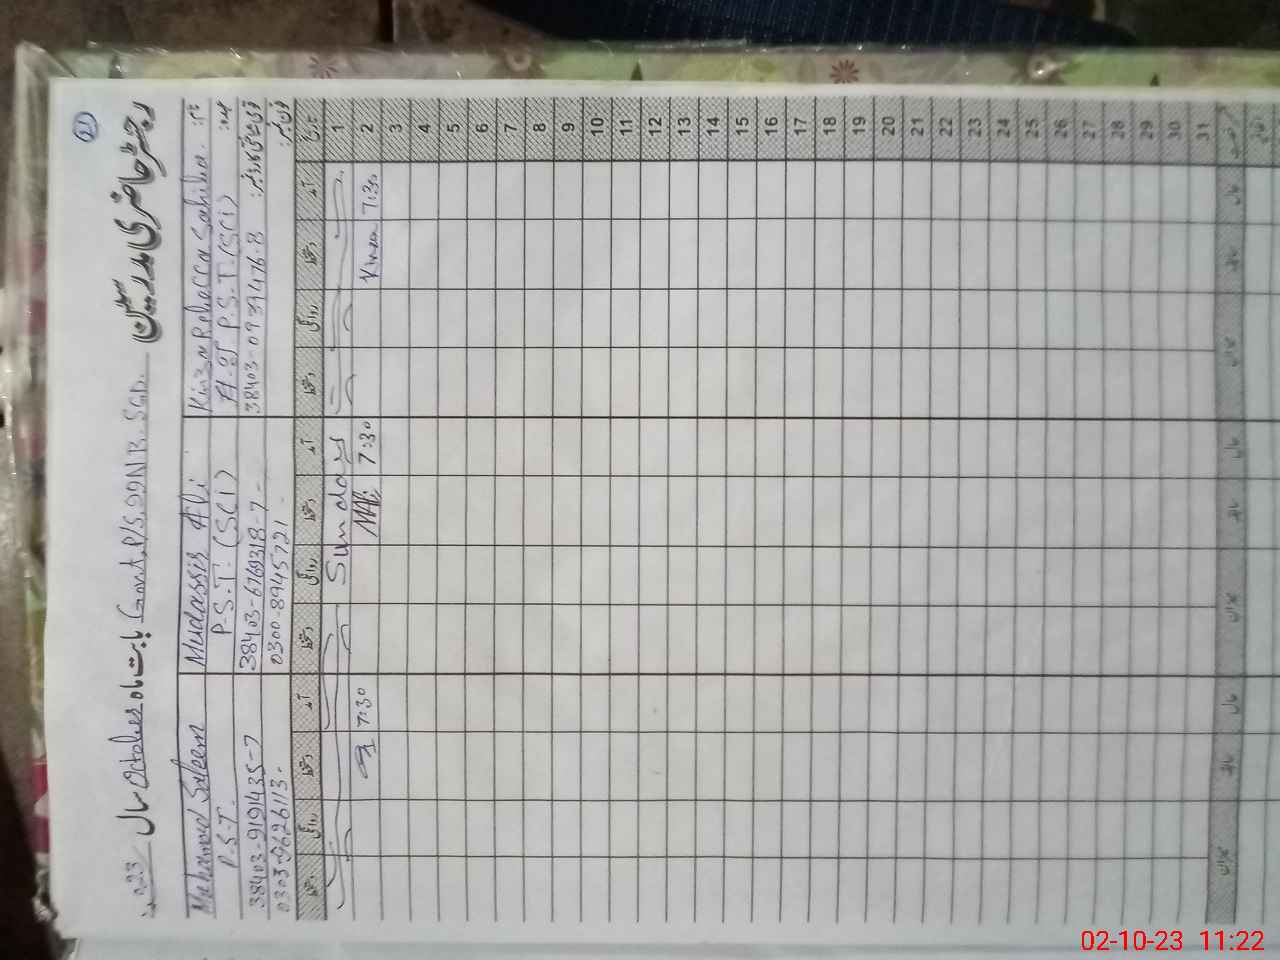 21
رجسٹر حاضری مدرسین بابت ماہ October سال 2023
Govt. P/S, 99 N.B. SGD.
نام: Kinza Rehecca Sahiba. Mudassir Ali Muhammad Saleem
عہدہ: P.S.T. (SCI) P.S.T. (SCI) P.S.T.
قومی شناختی کارڈ نمبر: 38403-0939476-8 38403-6769318-7 38403-9191435-7
فون نمبر: 0300-8945721 0303-9626113
تاریخ آمد دستخط روانگی دستخط آمد دستخط روانگی دستخط آمد دستخط روانگی دستخط
1 Sunday
2 7:30 Kinza 7:30 MAli 7:30
3
4
5
6
7
8
9
10
11
12
13
14
15
16
17
18
19
20
21
22
23
24
25
26
27
28
29
30
31
حال سابقہ میزان حال سابقہ میزان حال سابقہ میزان
02-10-23 11:22